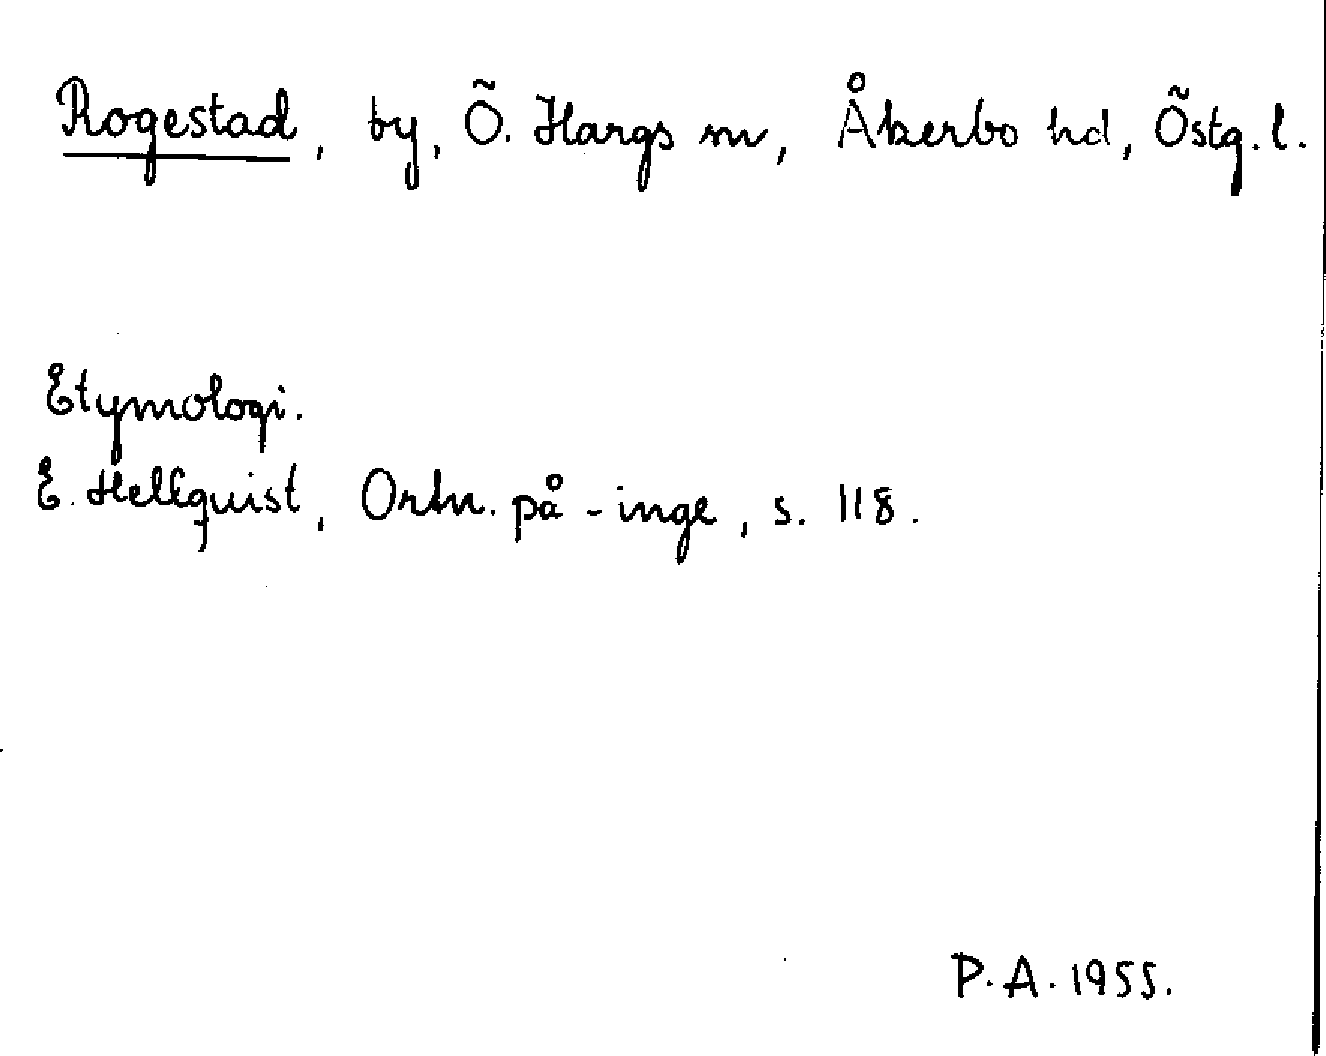 Rogestad, by, Ö. Hargs sn, Åkerbo hd, Östg. l.
Etymologi.
E. Hellquist, Ortn. på -inge, s. 118.
P.A. 1955.